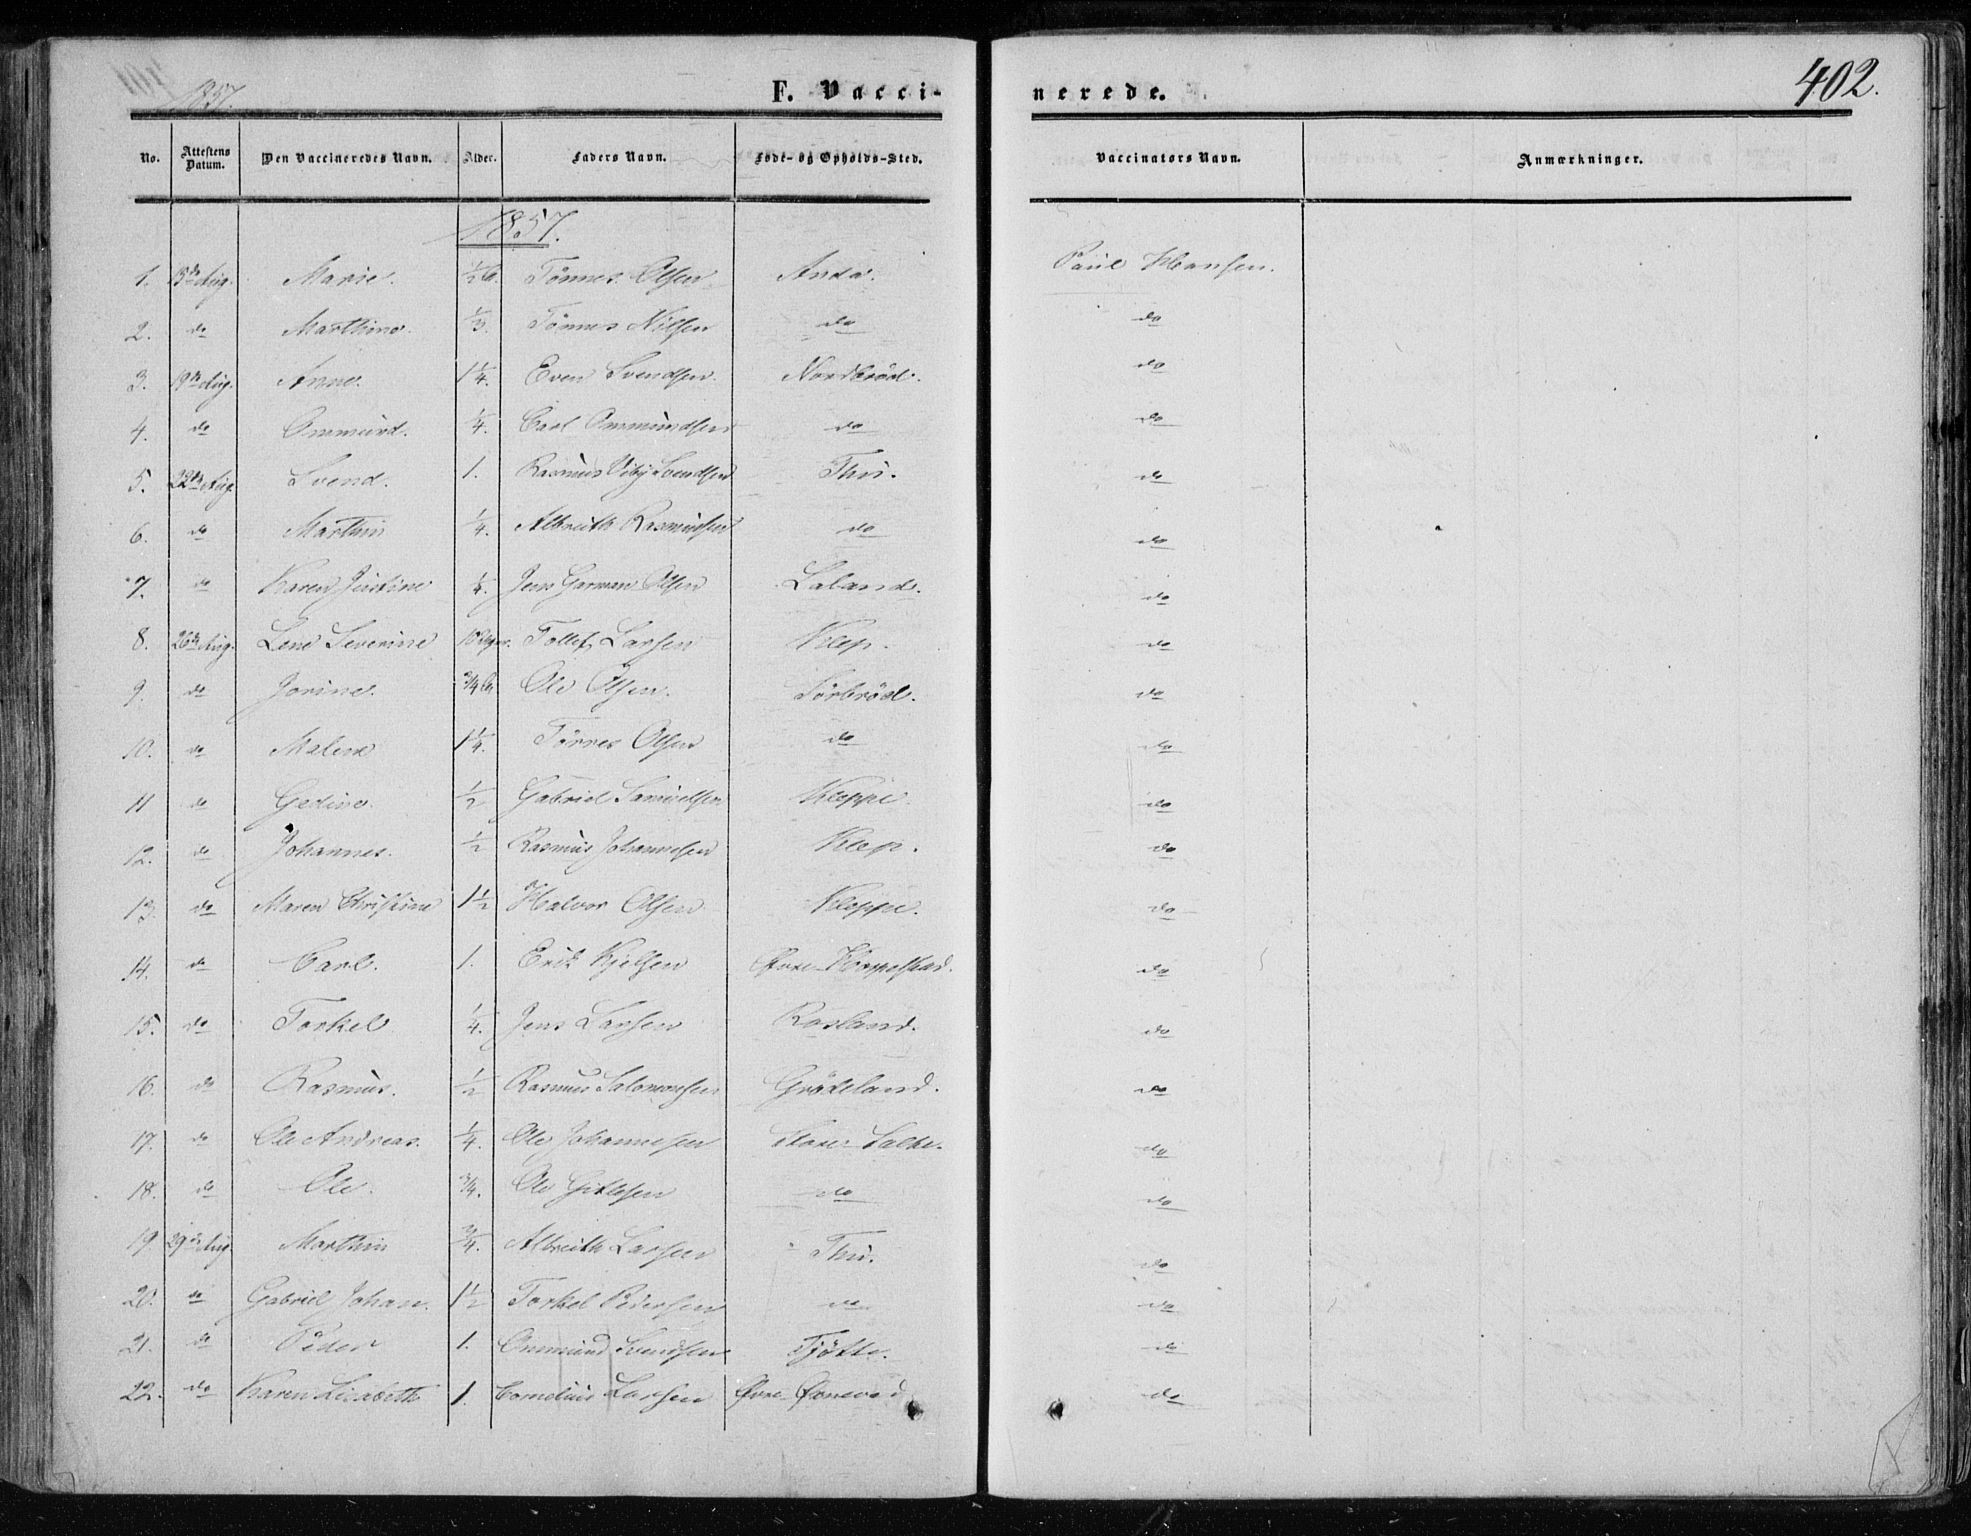 1857.
F. Vacci-
nerede.
402.
No. Attestens Datum. Den Vaccineredes Navn. Alder. Faders Navn. Føde- og Opholds-Sted. Vaccinators Navn. Anmærkninger.
1857.
1. 15de Aug. Marie. ½ Tönnes Olsen Anda. Paul Hansen.
2. do Marthine. ⅓. Tönnes Nilsen do do
3. 19de Aug. Anne. 1¼. Even Svendsen. Nordbröd. do
4. do Ommund. ¼. Carl Ommundsen do do
5. 22de Aug. Svend. 1. Rasmus Svendsen Thu. do
6. do Marthin ¼. Albreith Rasmussen do do
7. do Karen Justine ¼. Jens Garman Olsen Laland. do
8. 26de Aug. Lene Severine 10 Tollef Larsen Klep. do
9. do Jorine. ¾ Ole Olsen. Sörbröd. do
10. do Malene 1¼. Törres Olsen do do
11 do Gedine. ½ Gabriel Samuelsen Kleppe. do
12. do Johannes. ½ Rasmus Johannesen Klep. do
13. do Maren Christine 1½ Halvor Olsen Kleppe. do
14. do Carl. 1. Erik Kjelsen Øvre-Haapelstad. do
15. do Torkel ¼. Jens Larsen Rosland. do
16. do Rasmus. ½ Rasmus Salomonsen Grödeland. do
17. do Ole Andreas. ¼. Ole Johannesen Store-Salte. do
18. do Ole. ¾. Ole Gitlesen do do
19. 29de Aug. Marthin ¾. Albreith Larsen Thu. do
20. do Gabriel Johan. 1½ Torkel Pedersen do do
21. do Peder 1. Ommund Svendsen Tjötte. do
22. do Karen Lisabeth 1. Cornelius Larsen Øvre-Øxnevad do